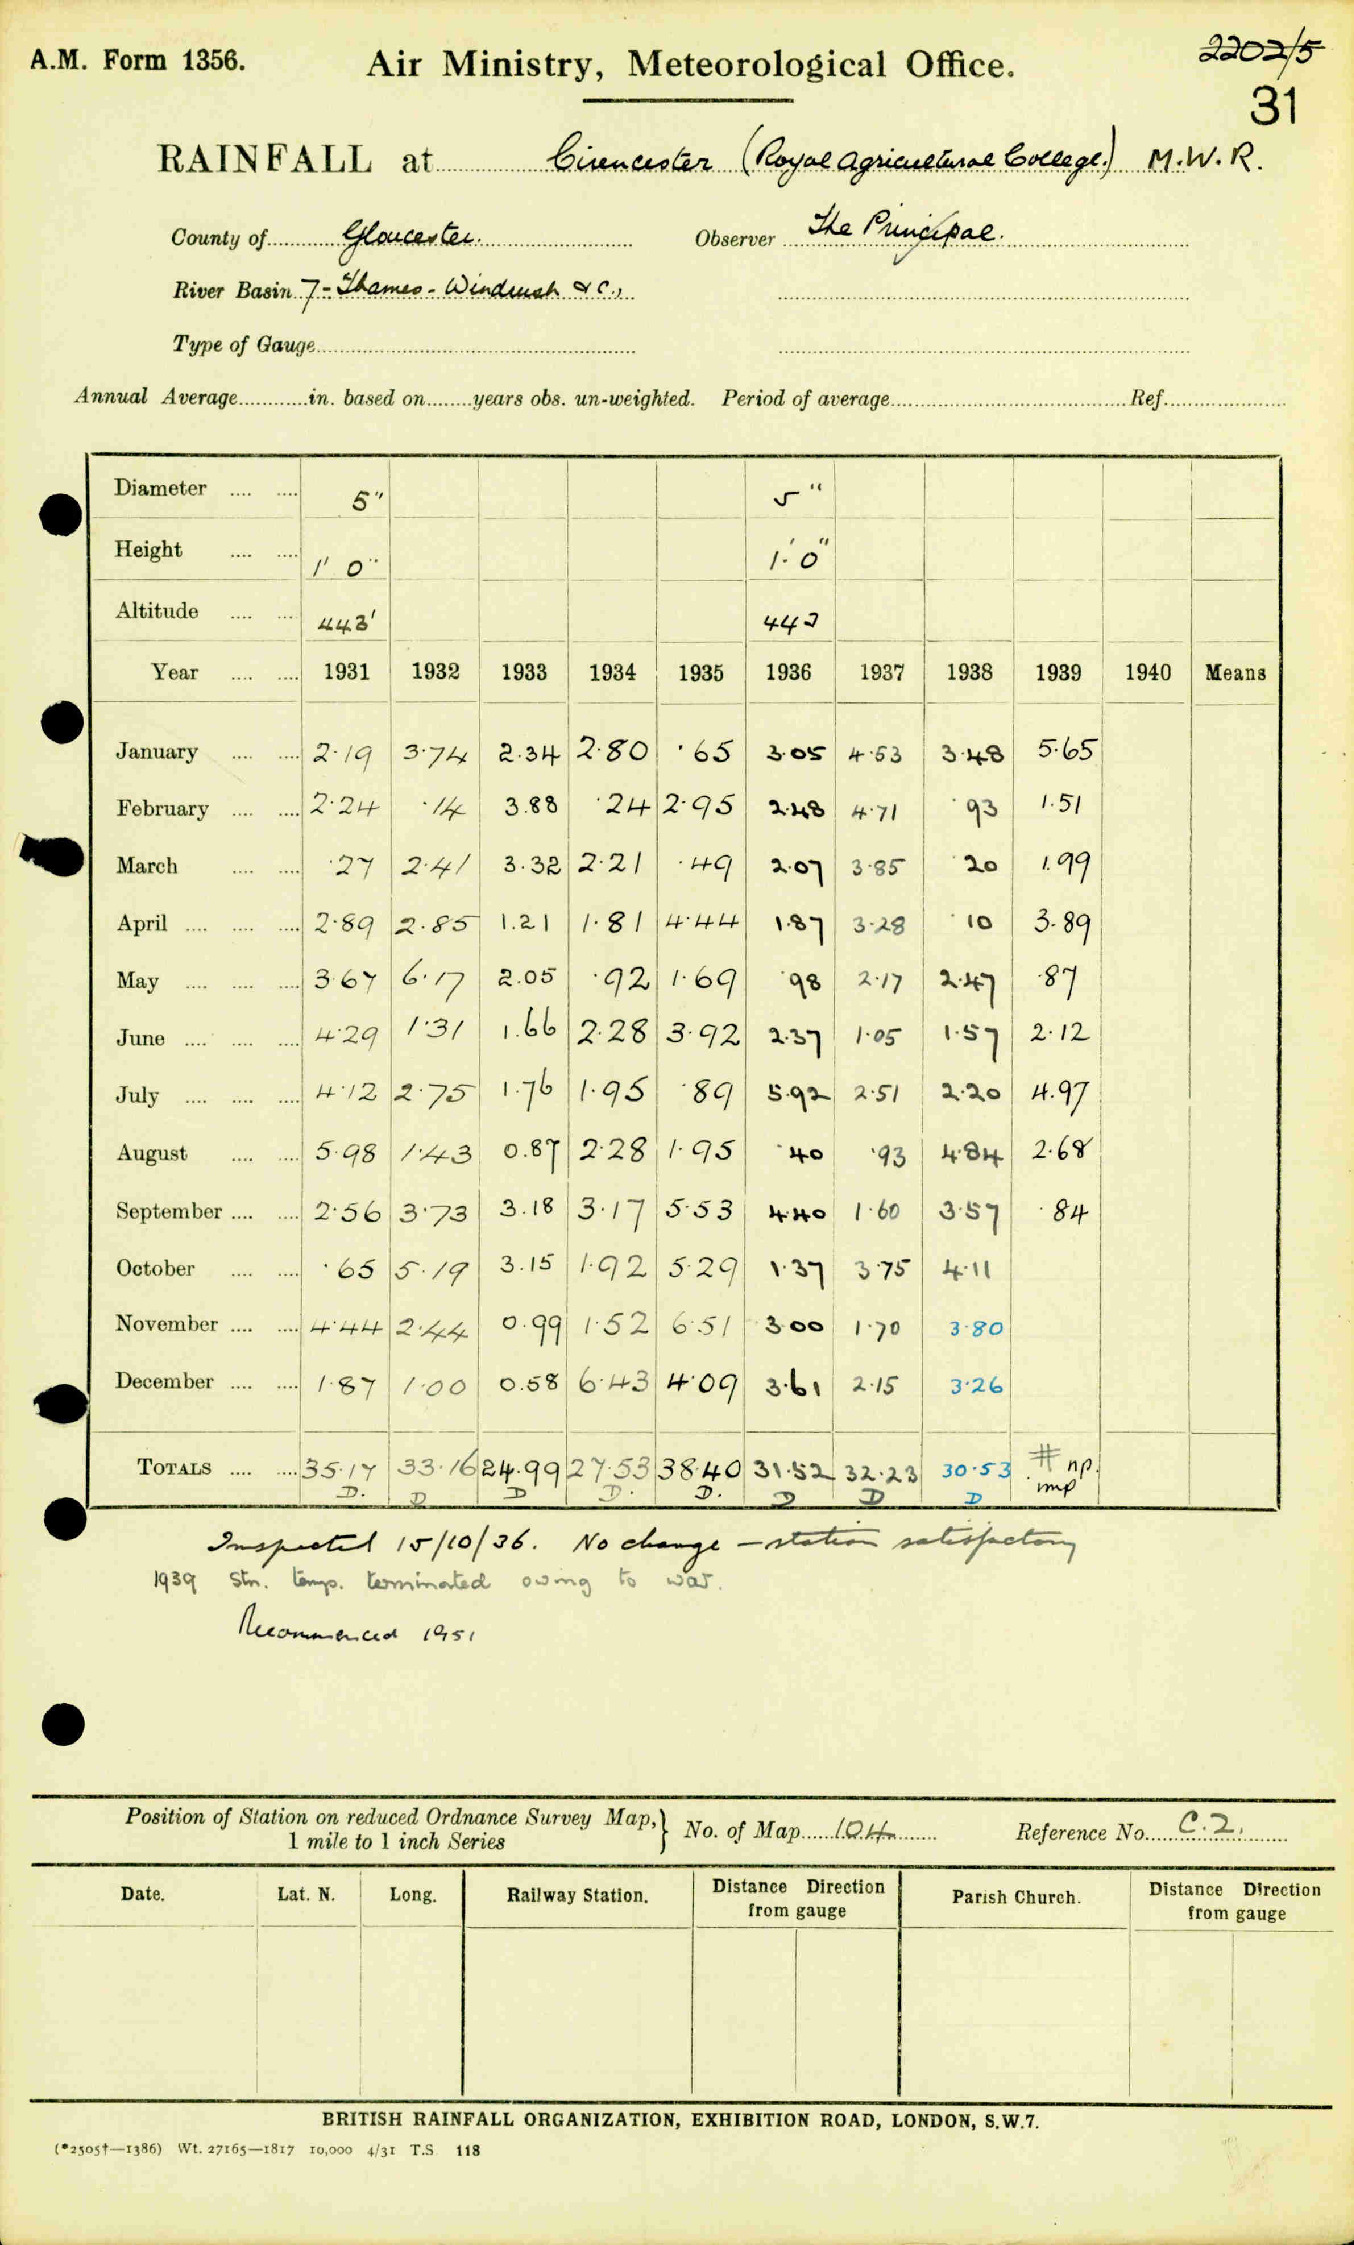 A.M. Form 1356.
Air Ministry, Meteorological Office.
2202/5
31
RAINFALL at Cirencester (Royal Agricultural College.) M.W.R.
County of Gloucester. Observer The Principal.
River Basin 7 - Thames - Windrush &c.,
Type of Gauge
Annual Average in. based on years obs. un-weighted. Period of average Ref.
Diameter 5" 5"
Height 1' 0" 1' 0"
Altitude 443' 443
Year 1931 1932 1933 1934 1935 1936 1937 1938 1939 1940 Means
January 2·19 3·74 2.34 2·80 ·65 3·05 4·53 3·48 5·65
February 2·24 ·14 3.88 ·24 2·95 2·48 4·71 ·93 1·51
March ·27 2·41 3.32 2·21 ·49 2·07 3·85 ·20 1.99
April 2·89 2·85 1.21 1·81 4·44 1·87 3·28 ·10 3·89
May 3·67 6·17 2.05 ·92 1·69 ·98 2·17 2·47 ·87
June 4·29 1·31 1.66 2·28 3·92 2·37 1·05 1·57 2·12
July 4·12 2·75 1·76 1·95 ·89 5·92 2·51 2·20 4.97
August 5·98 1·43 0.87 2·28 1·95 ·40 ·93 4·84 2·68
September 2·56 3·73 3.18 3·17 5·53 4·40 1·60 3·57 ·84
October ·65 5·19 3.15 1·92 5·29 1·37 3·75 4·11
November 4·44 2·44 0.99 1·52 6·51 3·00 1·70 3·80
December 1·87 1·00 0.58 6·43 4·09 3·61 2·15 3·26
TOTALS 35·17 33·16 24.99 27·53 38·40 31·52 32·23 30·53 # np.
D. D D D. D. D D D imp
Inspected 15/10/36. No change - station satisfactory
1939 Stn. temp. terminated owing to war.
Recommenced 1951
Position of Station on reduced Ordnance Survey Map,} No. of Map 104 Reference No. C.2.
1 mile to 1 inch Series
Date. Lat. N. Long. Railway Station. Distance Direction from gauge Parish Church. Distance Direction from gauge
BRITISH RAINFALL ORGANIZATION, EXHIBITION ROAD, LONDON, S.W.7.
(*2505†—1386) Wt. 27165—1817 10,000 4/31 T.S. 118